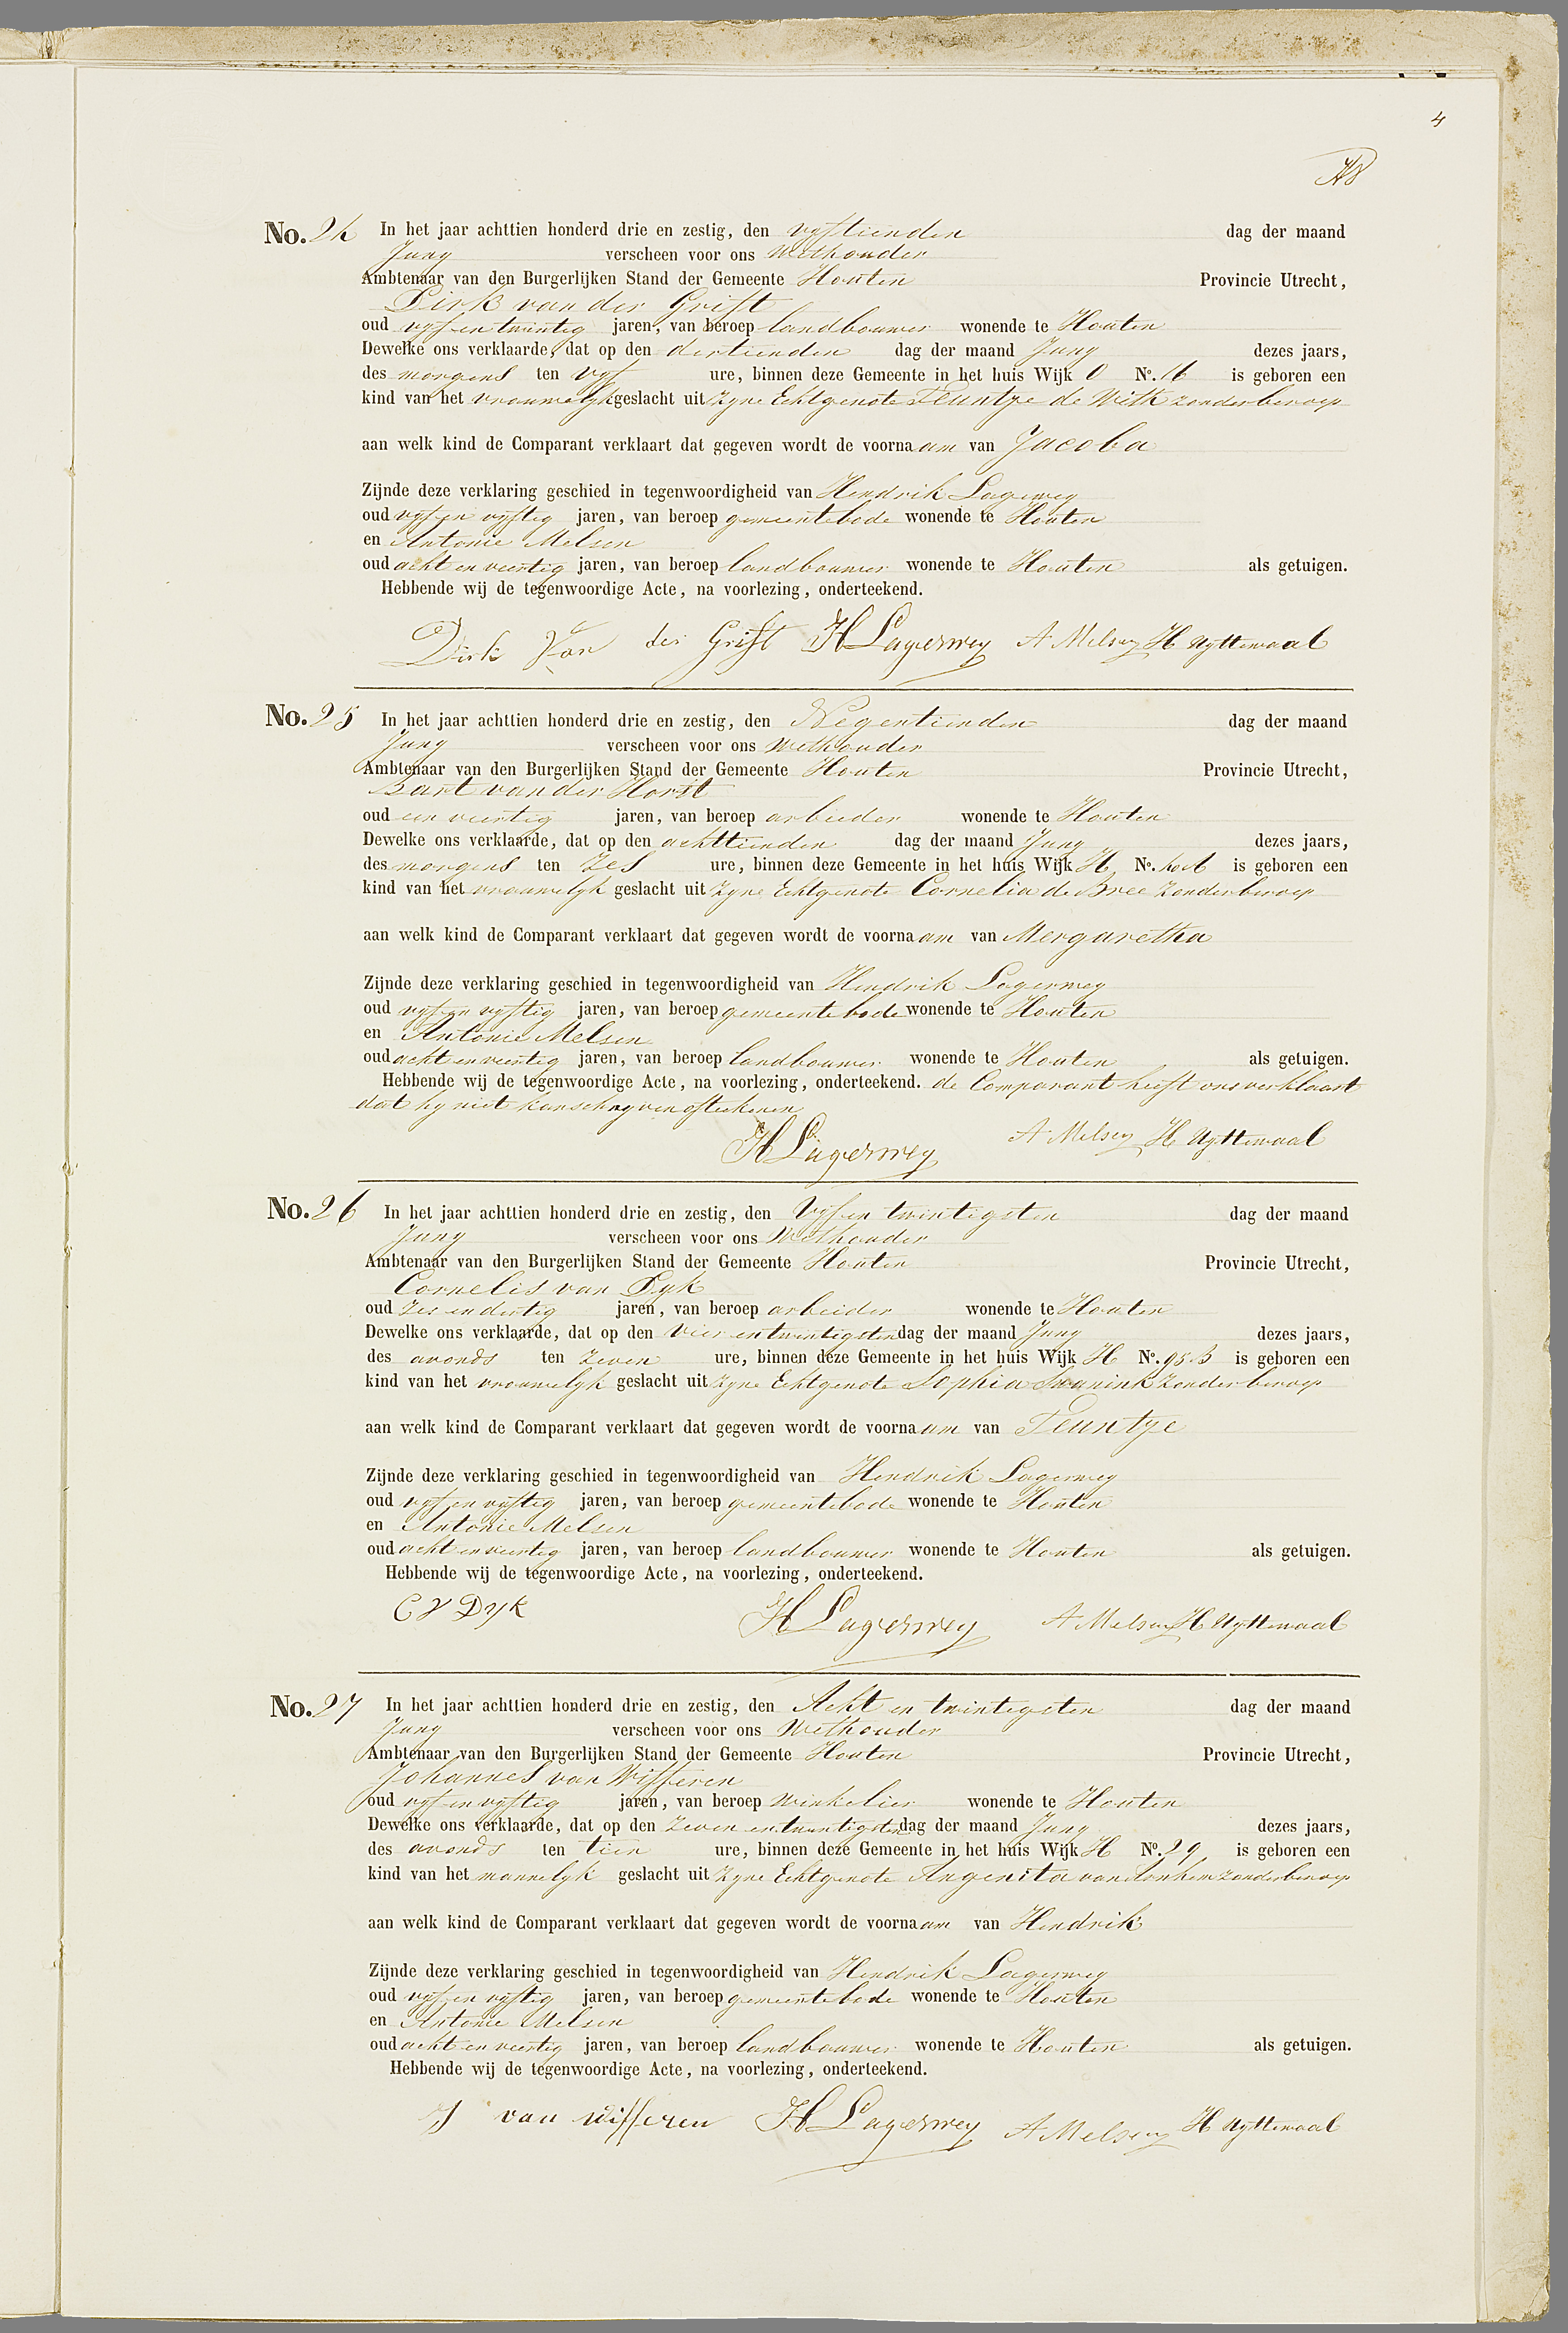 4
No. 24 In het jaar achttien honderd drie en zestig, den vyftienden dag der maand
Juny verscheen voor ons Wethouder
Ambtenaar van den Burgerlijken Stand der Gemeente Houten Provincie Utrecht,
Dirk van der Grift
oud vyf en twintig jaren, van beroep landbouwer wonende te Houten
Dewelke ons verklaarde, dat op den dertienden dag der maand Juny dezes jaars,
des morgens ten vyf ure, binnen deze Gemeente in het huis Wijk O No. 16 is geboren een
kind van het vrouwelyk geslacht uit zyne Echtgenote Teuntje de With zonder beroep
aan welk kind de Comparant verklaart dat gegeven wordt de voornaam van Jacoba
Zijnde deze verklaring geschied in tegenwoordigheid van Hendrik Lagerweg
oud vyf en vyftig jaren, van beroep gemeentebode wonende te Houten
en Antonie Melsen
oud acht en veertig jaren, van beroep landbouwer wonende te Houten als getuigen.
Hebbende wij de tegenwoordige Acte, na voorlezing, onderteekend.
Dirk Van der Grift H Lagerwey A Melsen H Uyttewaal
No. 25 In het jaar achttien honderd drie en zestig, den Negentienden dag der maand
Juny verscheen voor ons Wethouder
Ambtenaar van den Burgerlijken Stand der Gemeente Houten Provincie Utrecht,
Bart van der Horst
oud een veertig jaren, van beroep arbieder wonende te Houten
Dewelke ons verklaarde, dat op den achttienden dag der maand Juny dezes jaars,
des morgens ten zes ure, binnen deze Gemeente in het huis Wijk H No. is geboren een
kind van het vrouwelyk geslacht uit zyne Echtgenote Cornelia de Bree zonder beroep
aan welk kind de Comparant verklaart dat gegeven wordt de voornaam van Mergaretha
Zijnde deze verklaring geschied in tegenwoordigheid van Hendrik Lagerweg
oud vyf en vyftig jaren, van beroep gemeentebode wonende te Houten
en Antonie Melsen
oud acht en veertig jaren, van beroep landbouwer wonende te Houten als getuigen.
Hebbende wij de tegenwoordige Acte, na voorlezing, onderteekend. de Comparant heeft ons verklaart
dat hy niet kan schryven of teekenen
H Lagerwey A Melsen H Uyttewaal
No. 26 In het jaar achttien honderd drie en zestig, den Vyf en twintigsten dag der maand
Juny verscheen voor ons Wethouder
Ambtenaar van den Burgerlijken Stand der Gemeente Houten Provincie Utrecht,
Cornelis van Dyk
oud zes en dertig jaren, van beroep arbeider wonende te Houten
Dewelke ons verklaarde, dat op den vier en twintigsten dag der maand Juny dezes jaars,
des avonds ten zeven ure, binnen deze Gemeente in het huis Wijk H No. 95 B is geboren een
kind van het vrouwelyk geslacht uit zyne Echtgenote Sophia Swanink zonder beroep
aan welk kind de Comparant verklaart dat gegeven wordt de voornaam van Teuntje
Zijnde deze verklaring geschied in tegenwoordigheid van Hendrik Lagerweg
oud vyf en vyftig jaren, van beroep gemeentebode wonende te Houten
en Antonie Melsen
oud acht en veertig jaren, van beroep landbouwer wonende te Houten als getuigen.
Hebbende wij de tegenwoordige Acte, na voorlezing, onderteekend.
C V Dyk H Lagerwey A Melsen H Uyttewaal
No. 27 In het jaar achttien honderd drie en zestig, den Acht en twintigsten dag der maand
Juny verscheen voor ons Wethouder
Ambtenaar van den Burgerlijken Stand der Gemeente Houten Provincie Utrecht,
Johannes van Wifferen
oud vyf en vyftig jaren, van beroep winkelier wonende te Houten
Dewelke ons verklaarde, dat op den zeven en twintigsten dag der maand Juny dezes jaars,
des avonds ten tien ure, binnen deze Gemeente in het huis Wijk H No. 29 is geboren een
kind van het mannelyk geslacht uit zyne Echtgenote Angenita van zonder beroep
aan welk kind de Comparant verklaart dat gegeven wordt de voornaam van Hendrik
Zijnde deze verklaring geschied in tegenwoordigheid van Hendrik Lagerweg
oud vyf en vyftig jaren, van beroep gemeentebode wonende te Houten
en Antonie Melsen
oud acht en veertig jaren, van beroep landbouwer wonende te Houten als getuigen.
Hebbende wij de tegenwoordige Acte, na voorlezing, onderteekend.
J van wifferen H Lagerwey A Melsen H Uyttewaal